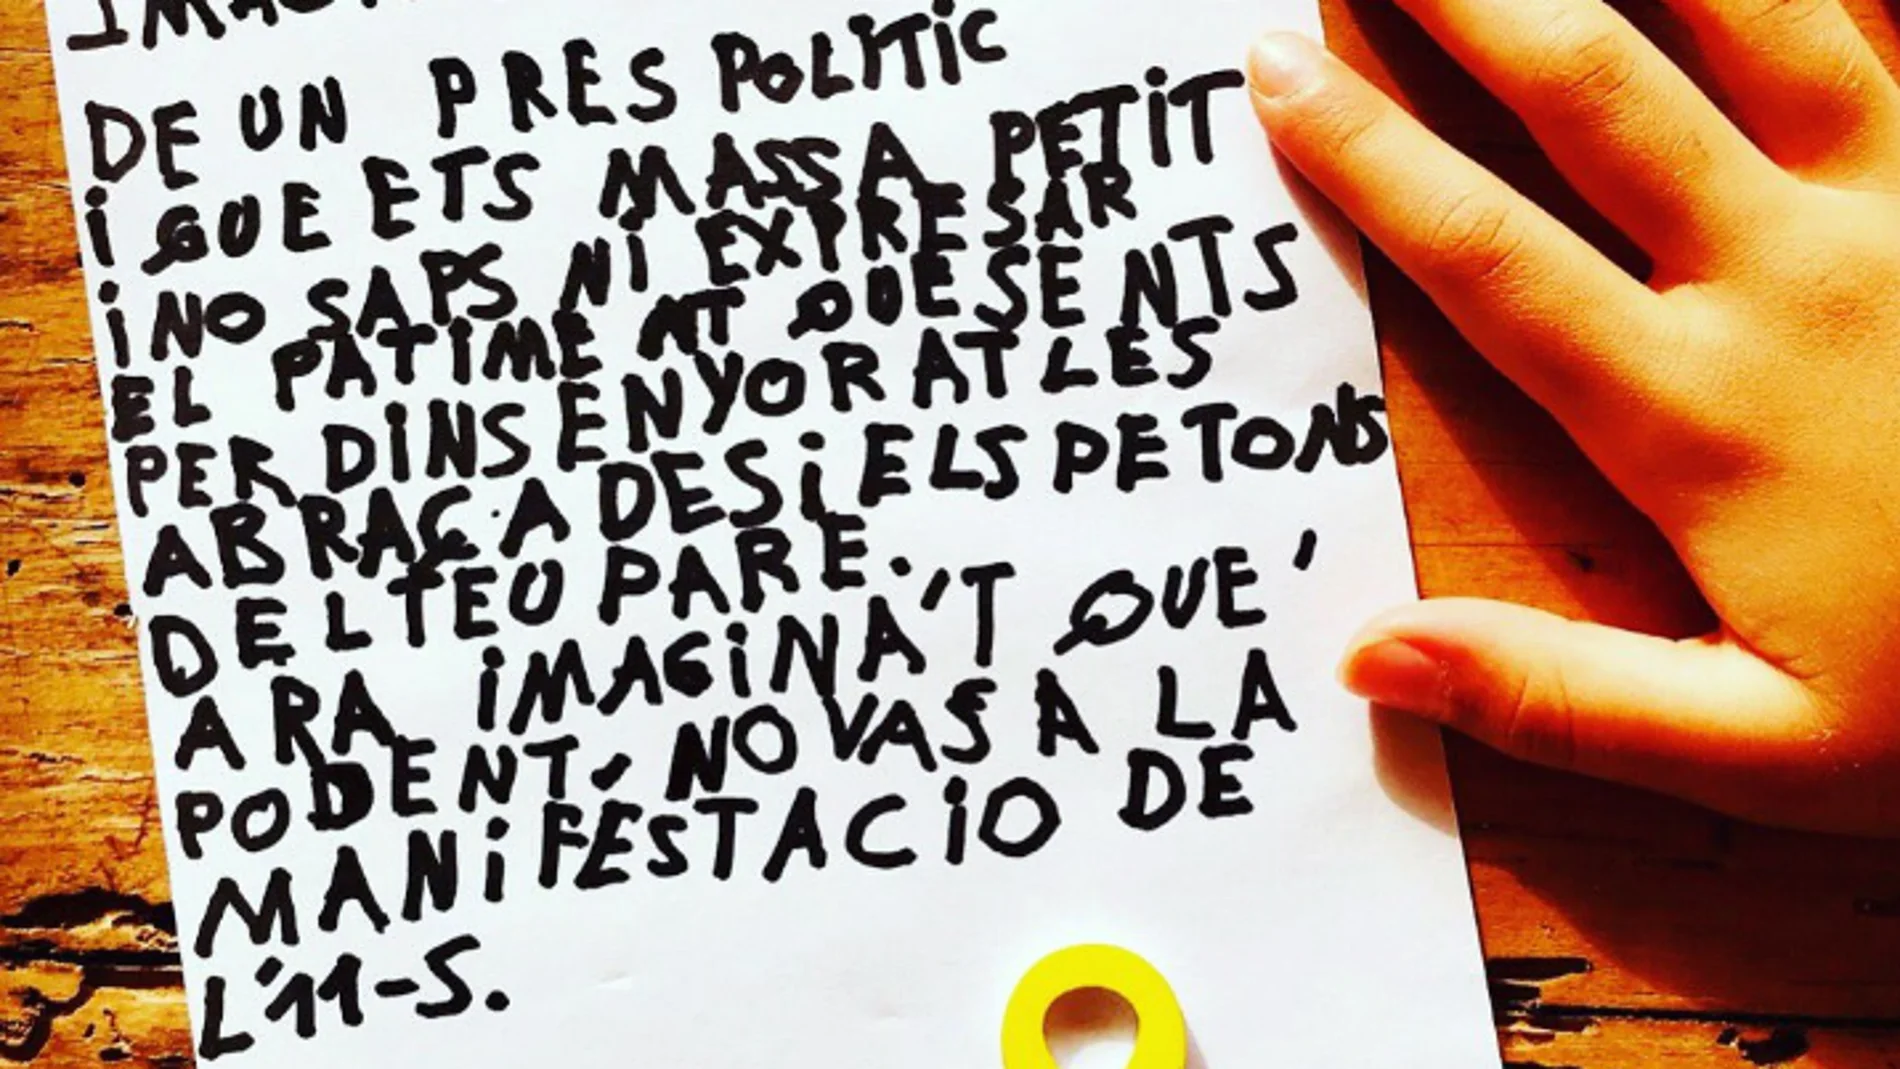 DE UN PRES POLITIC
i QUE ETS MASSA PETIT
i NO SAPS NI EXPRESAR
EL PATIMENT QUE SENTS
PER DINS ENYORAT LES
ABRAÇADES i ELS PETONS
DEL TEU PARE.
ARA IMAGINA'T QUE'
PODENT, NO VAS A LA
MANIFESTACIO DE
L'11-S.